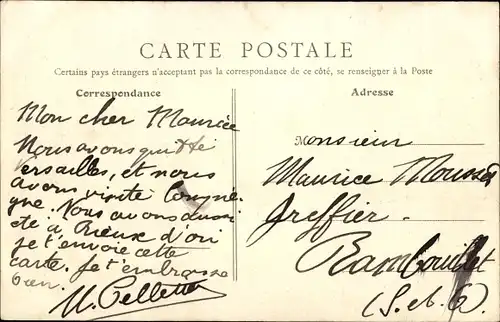 CARTE POSTALE
Certains pays étrangers n'acceptant pas la correspondance de ce côté, se renseigner à la Poste
Correspondance
Mon cher Maurice
Nous avons quitté
Versailles, et nous
avons visité Compiè-
gne. Nous avons aussi
été à d'où
je t'envoie cette
carte. Je t'embrasse
bien.
Adresse
Monsieur
Maurice
Greffier
Rambouillet
(S. et O.)